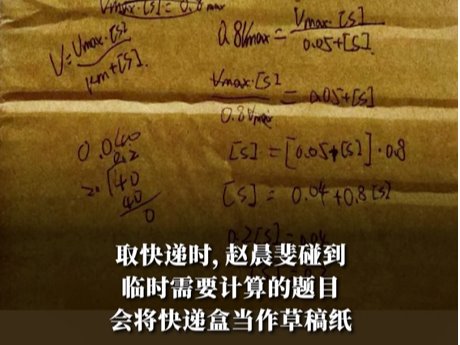 Vmax·[S] = 0.8
V = Vmax·[S] / Km+[S]
0.8Vmax = Vmax·[S] / 0.05+[S]
Vmax·[S] / 0.8Vmax = 0.05+[S]
[S] = [0.05+[S]]·0.8
[S] = 0.04+0.8[S]
0.2
40
40
0
取快递时, 赵晨斐碰到
临时需要计算的题目
会将快递盒当作草稿纸